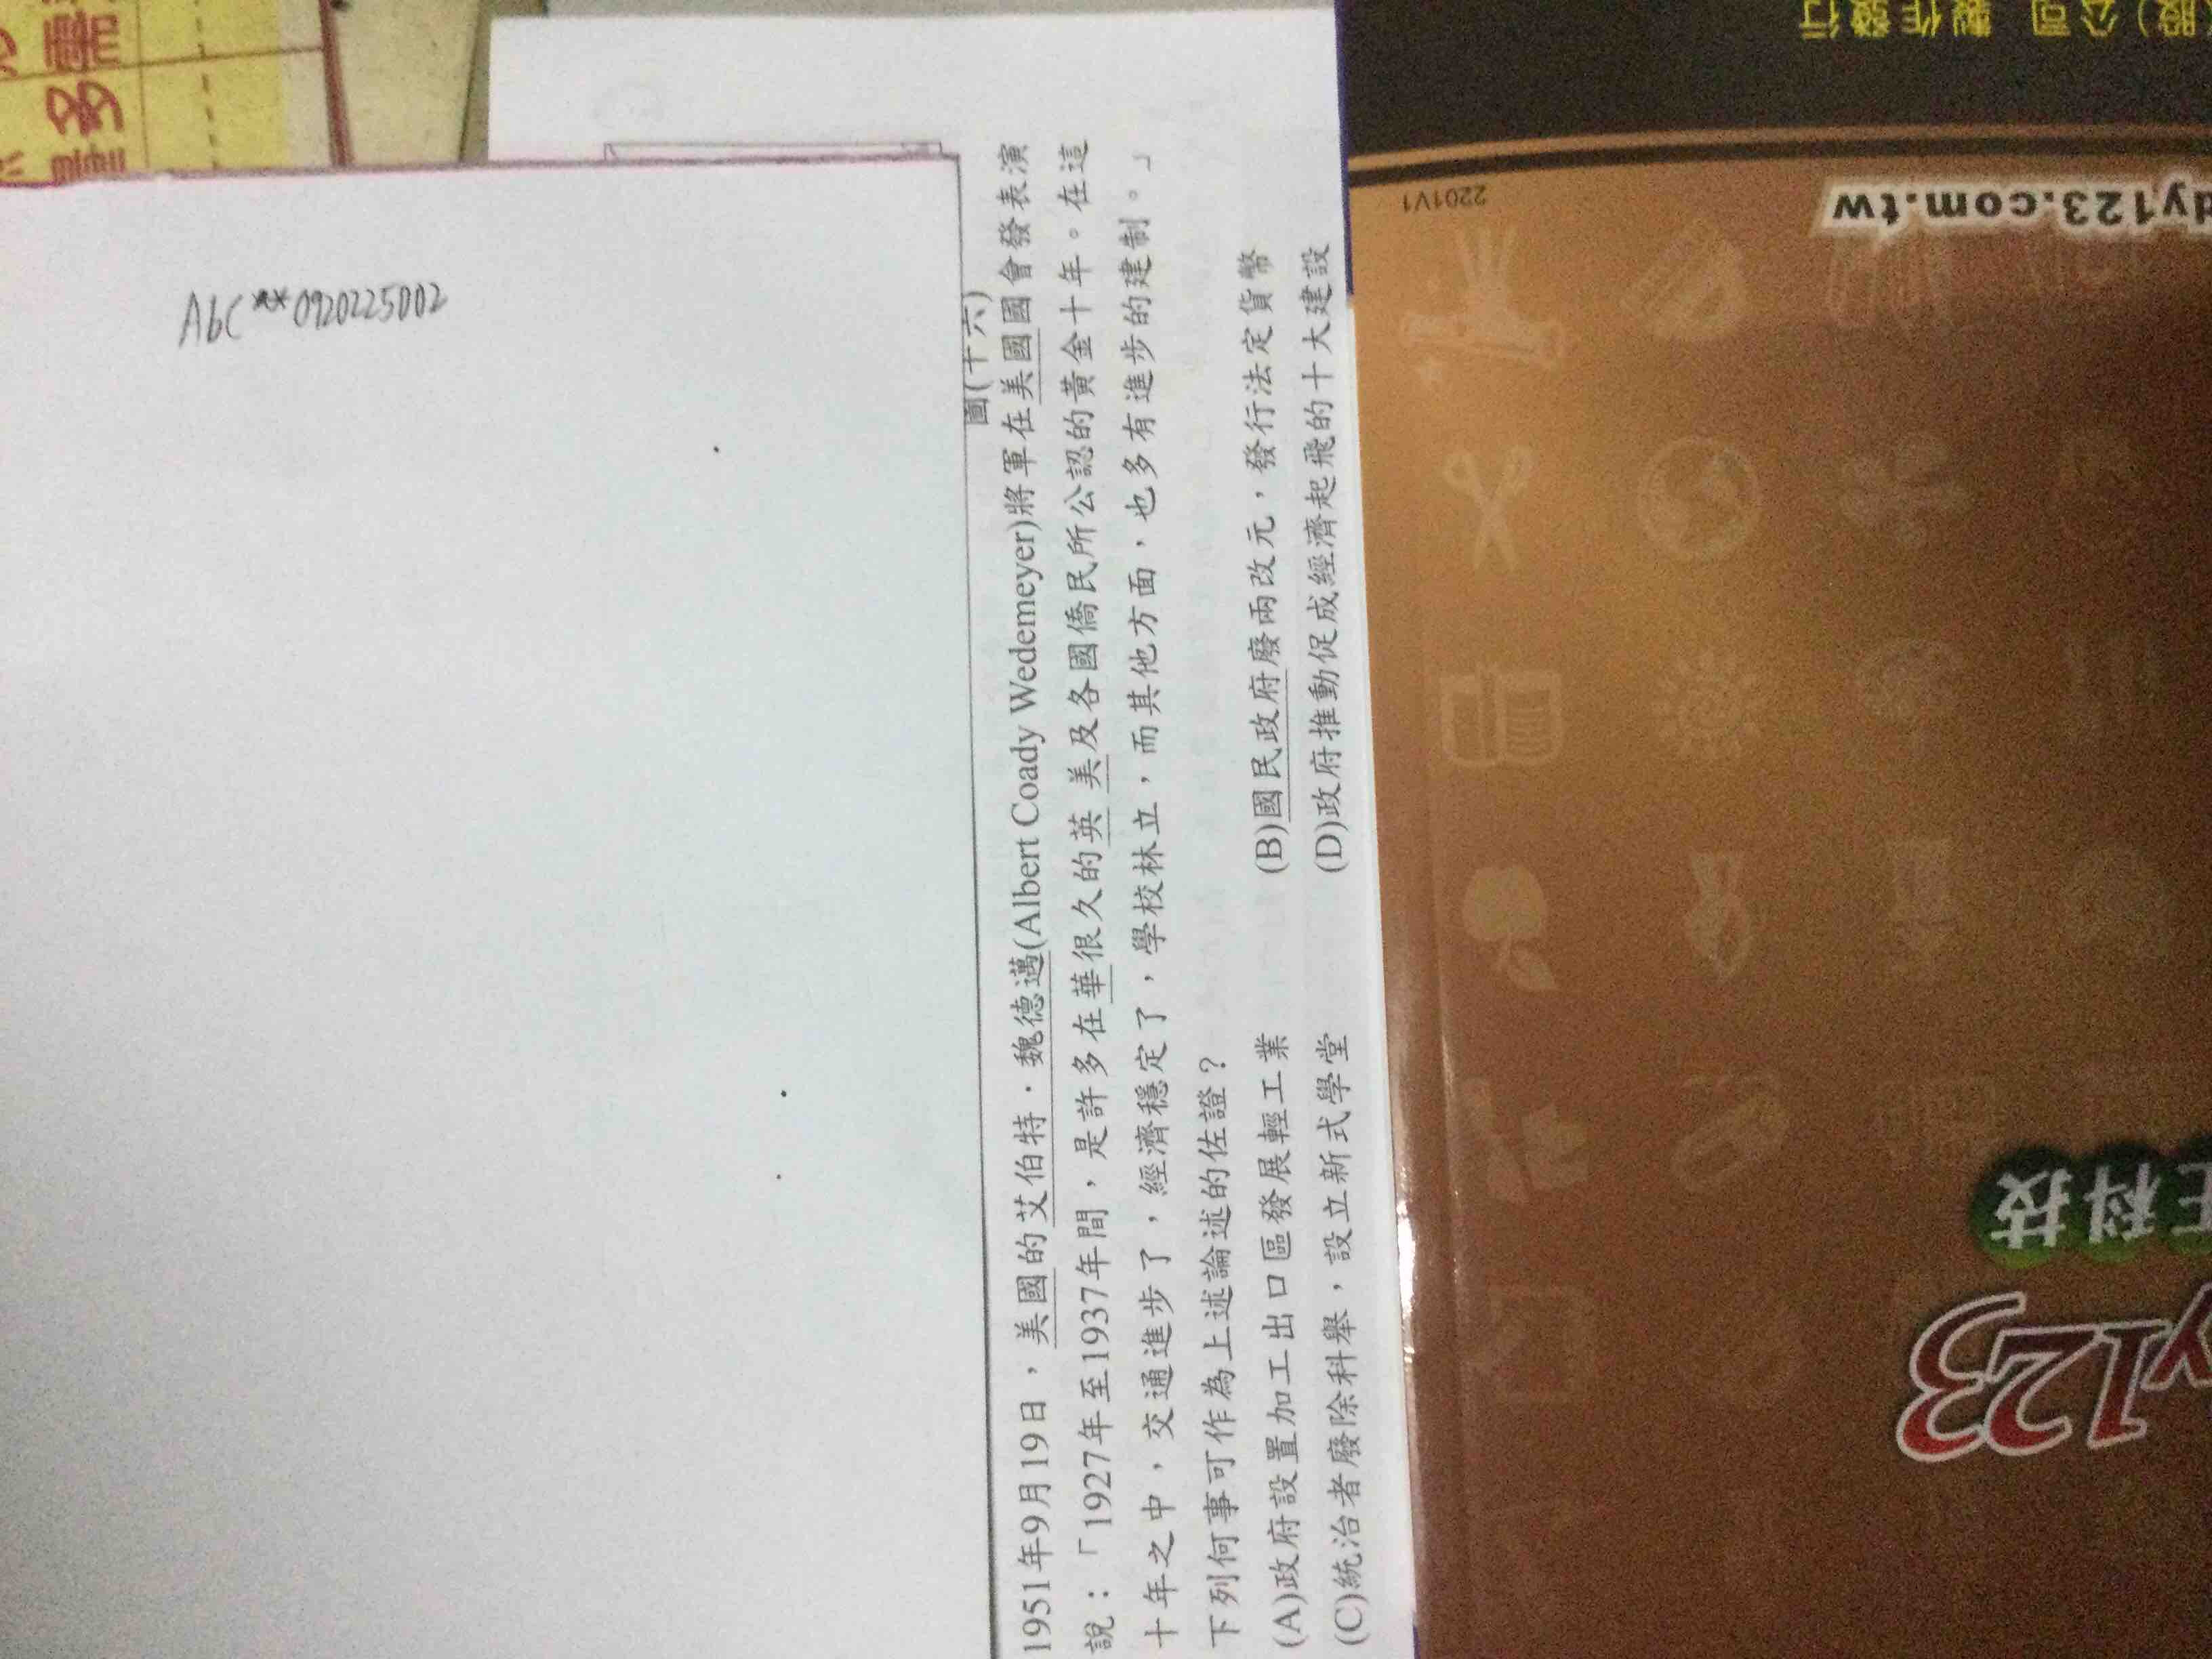 AbC**0920225002
圖(十六)
1951年9月19日，美國的艾伯特．魏德邁(Albert Coady Wedemeyer)將軍在美國國會發表演
說：「1927年至1937年間，是許多在華很久的英美及各國僑民所公認的黃金十年。在這
十年之中，交通進步了，經濟穩定了，學校林立，而其他方面，也多有進步的建制。」
下列何事可作為上述論述的佐證？
(A)政府設置加工出口區發展輕工業
(B)國民政府廢兩改元，發行法定貨幣
(C)統治者廢除科舉，設立新式學堂
(D)政府推動促成經濟起飛的十大建設
股)公司 製作發行
2201V1
dy123.com.tw
科技
y123
多需